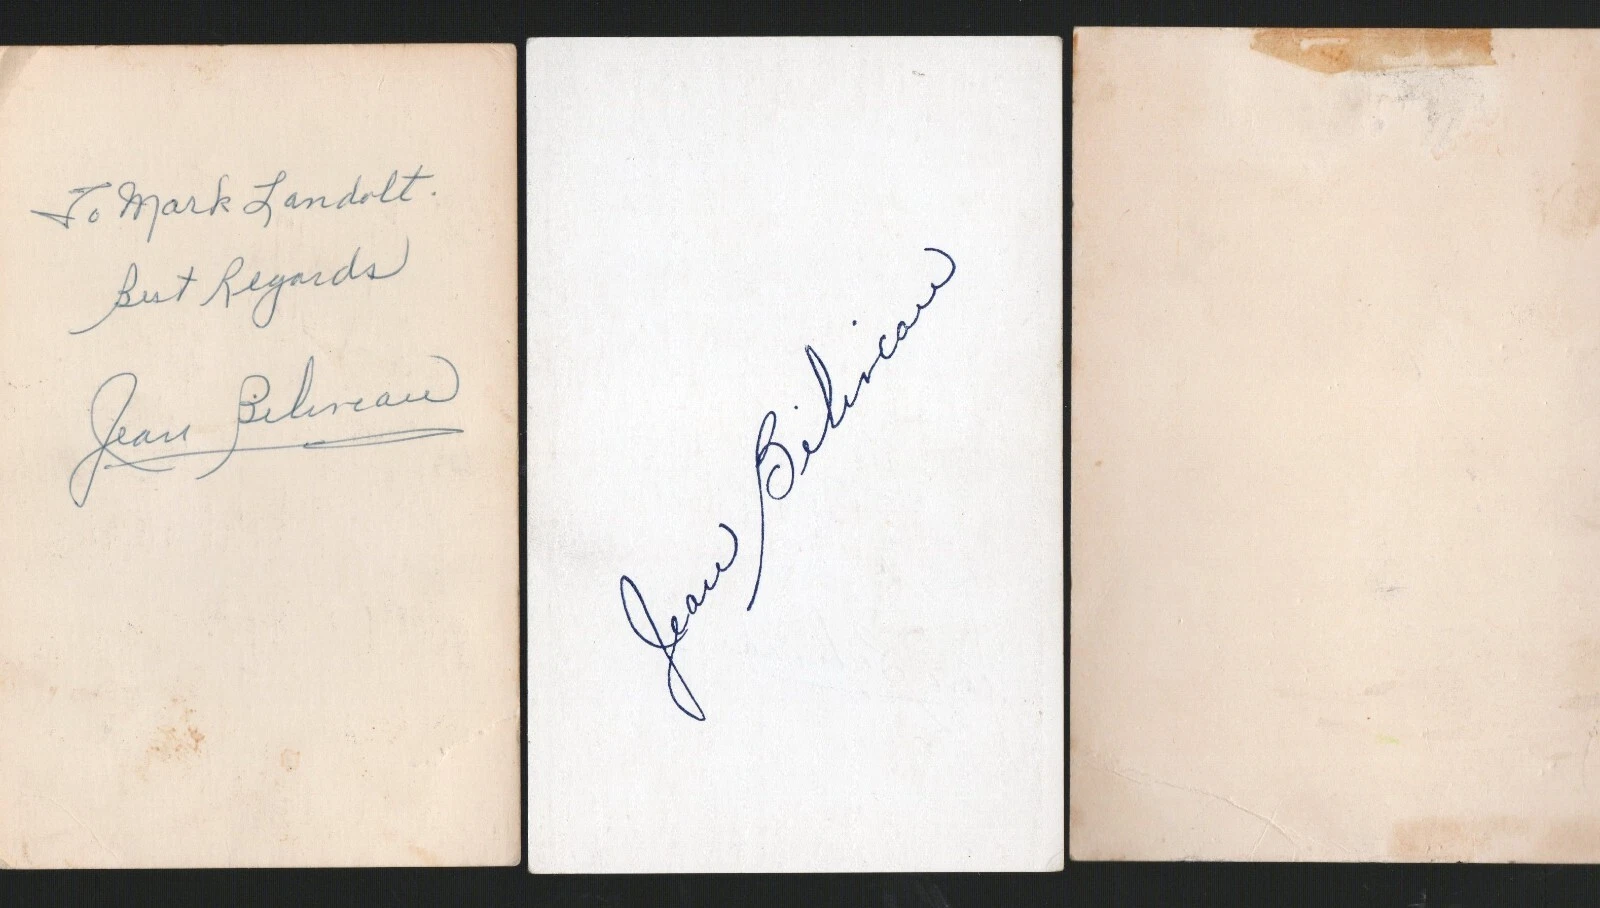 To Mark Landolt.
Best Regards
Jean Béliveau
Jean Béliveau